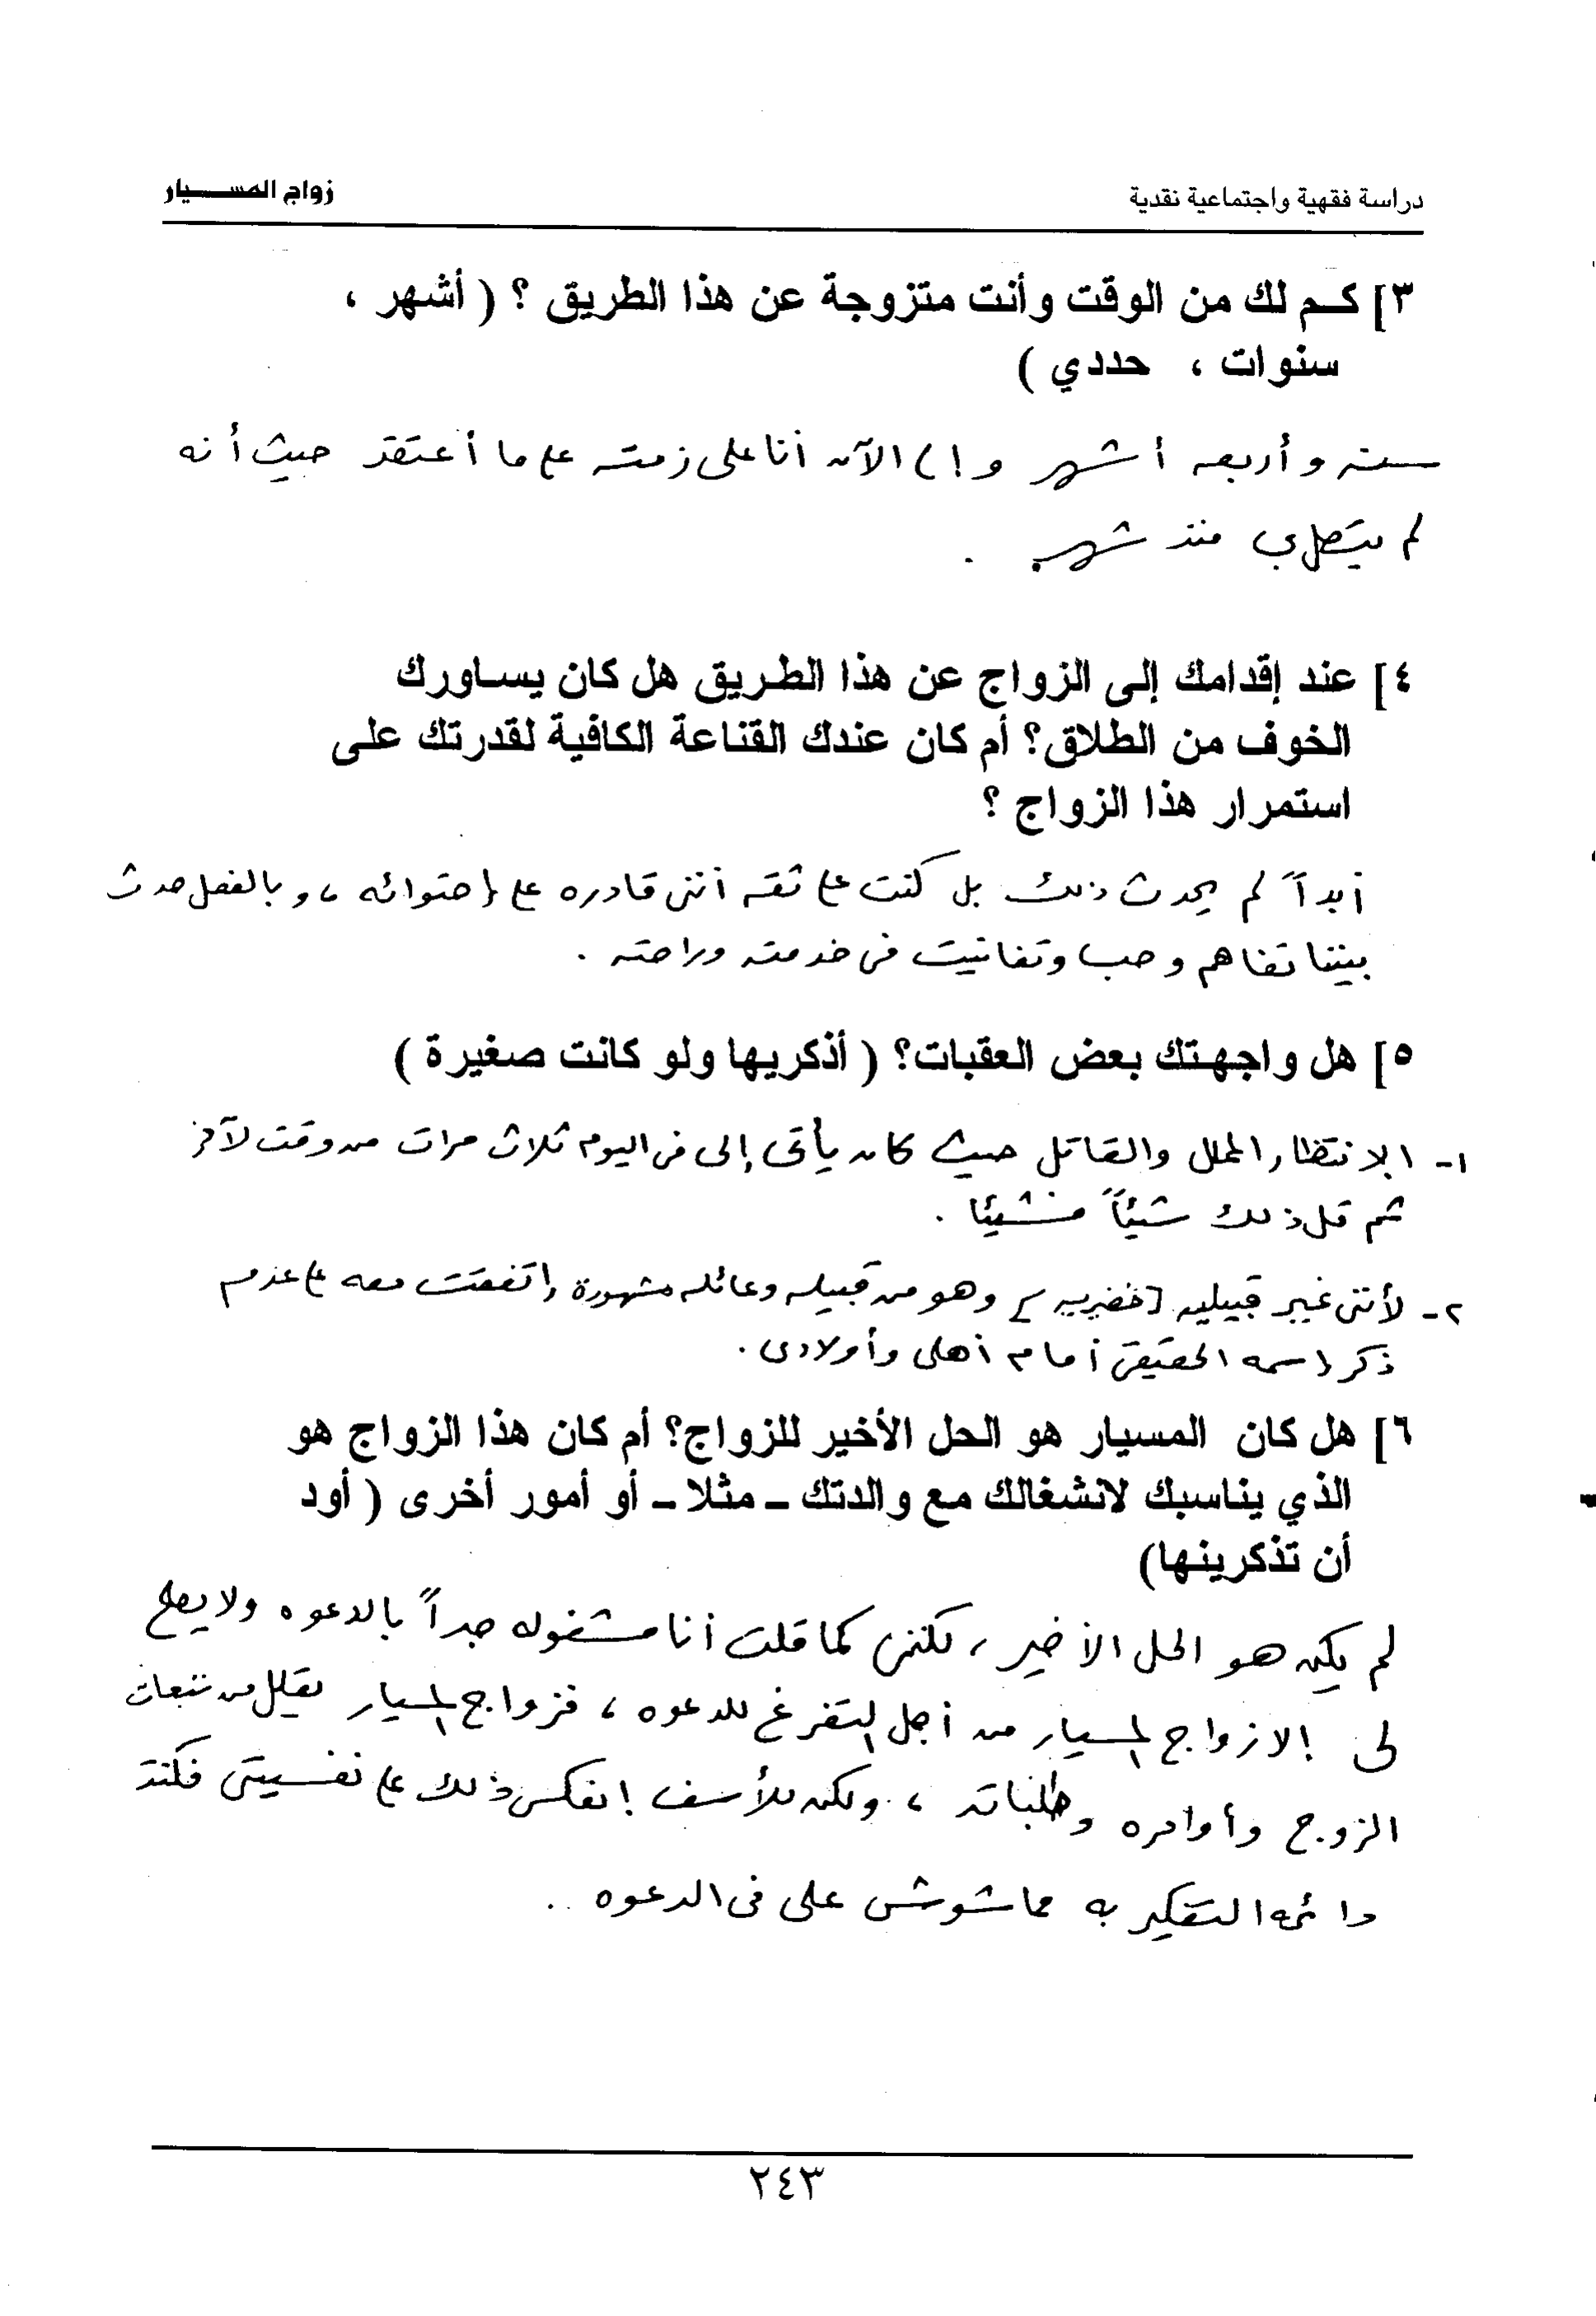 دراسة فقهية واجتماعية نقدية
زواج المسيار
٣] كم لك من الوقت وأنت متزوجة عن هذا الطريق ؟ ( أشهر ،
سنوات ، حددي )
سنه وأربعه أشهر وإلى الآن أنا على زمته على ما أعتقد حيث أنه
لم يتصل بي منذ شهر .
٤] عند إقدامك إلى الزواج عن هذا الطريق هل كان يساورك
الخوف من الطلاق؟ أم كان عندك القناعة الكافية لقدرتك على
استمرار هذا الزواج ؟
أبداً لم يحدث ذلك بل كنت على ثقه أنني قادره على إحتوائه ، وبالفعل حدث
بيننا تفاهم وحب وتفانيت في خدمته وراحته .
٥] هل واجهتك بعض العقبات؟ ( أذكريها ولو كانت صغيرة )
١- الإنتظار الممل والقاتل حيث كان يأتي إلى في اليوم ثلاث مرات من وقت لآخر
ثم قل ذلك شيئاً فشيئا .
٢- لأنني غير قبيليه [خضيريه] وهو من قبيله وعائله مشهورة إتفقت معه على عدم
ذكر إسمه الحقيقي أمام أهلي وأولادي .
٦] هل كان المسيار هو الحل الأخير للزواج؟ أم كان هذا الزواج هو
الذي يناسبك لانشغالك مع والدتك - مثلا - أو أمور أخرى ( أود
أن تذكرينها)
لم يكن هو الحل الأخير ، لكنني كما قلت أنا مشغوله جداً بالدعوه ولا يصلح
لي إلا زواج المسيار من أجل التفرغ للدعوه ، فزواج المسيار يقلل من تبعات
الزوج وأوامره وطلباته ، ولكن للأسف إنعكس ذلك على نفسيتي فكنت
دائمة التفكير به مما شوش على في الدعوه ..
٢٤٣